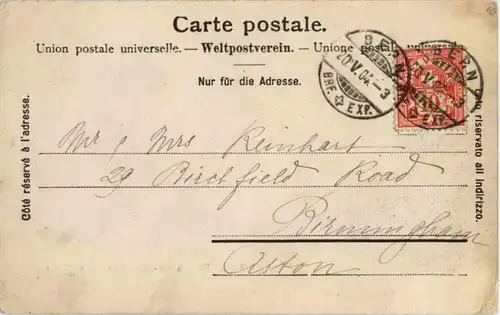 Carte postale.
Union postale universelle. — Weltpostverein. — Unione postale universale.
Nur für die Adresse.
Côté réservé à l'adresse.
Lato riservato all indirizzo.
BERN
20.V.04.-3
BRF. EXP.
BERN
EXP.
Mr & Mrs Reinhart
29 Birchfield Road
Birmingham
Aston